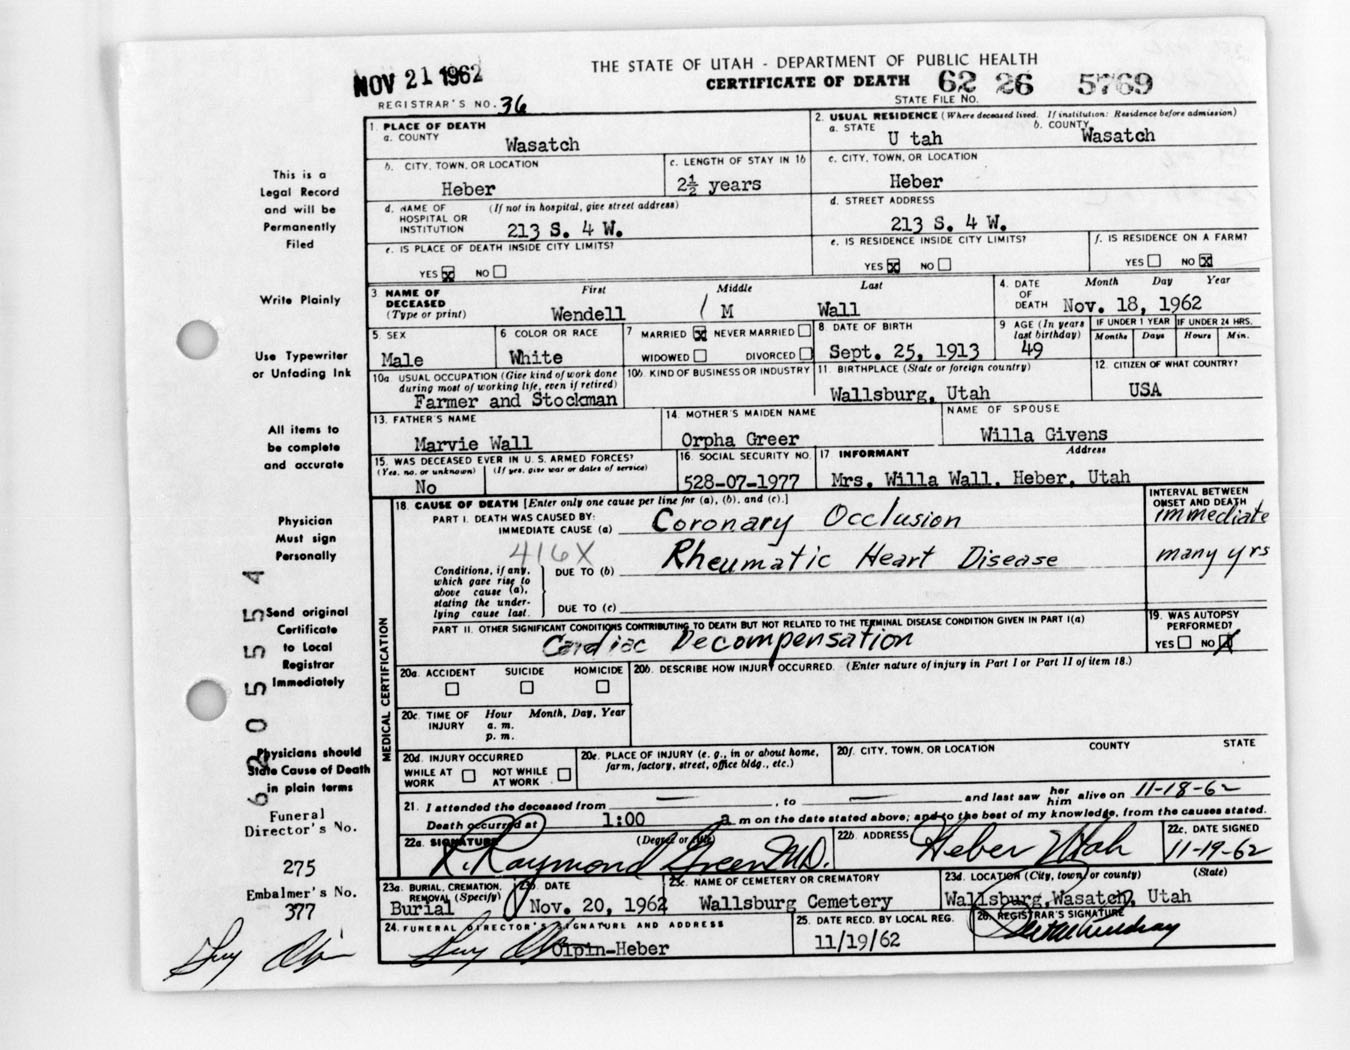 NOV 21 1962
THE STATE OF UTAH - DEPARTMENT OF PUBLIC HEALTH
CERTIFICATE OF DEATH 62 26 5769
REGISTRAR'S NO. 36
STATE FILE NO.
1. PLACE OF DEATH
a. COUNTY
Wasatch
2. USUAL RESIDENCE (Where deceased lived. If institution: Residence before admission)
a. STATE
U tah
b. COUNTY
Wasatch
b. CITY, TOWN, OR LOCATION
Heber
c. LENGTH OF STAY IN 1b
2½ years
c. CITY, TOWN, OR LOCATION
Heber
d. NAME OF HOSPITAL OR INSTITUTION
(If not in hospital, give street address)
213 S. 4 W.
d. STREET ADDRESS
213 S. 4 W.
e. IS PLACE OF DEATH INSIDE CITY LIMITS?
YES X NO
e. IS RESIDENCE INSIDE CITY LIMITS?
YES X NO
f. IS RESIDENCE ON A FARM?
YES NO X
3 NAME OF DECEASED (Type or print)
First Middle Last
Wendell / M Wall
4. DATE OF DEATH
Month Day Year
Nov. 18, 1962
5 SEX
Male
6 COLOR OR RACE
White
7 MARRIED X NEVER MARRIED
WIDOWED DIVORCED
8 DATE OF BIRTH
Sept. 25, 1913
9 AGE (In years last birthday)
49
IF UNDER 1 YEAR
Months Days
IF UNDER 24 HRS.
Hours Min.
10a USUAL OCCUPATION (Give kind of work done during most of working life, even if retired)
Farmer and Stockman
10b. KIND OF BUSINESS OR INDUSTRY
11. BIRTHPLACE (State or foreign country)
Wallsburg, Utah
12. CITIZEN OF WHAT COUNTRY?
USA
13. FATHER'S NAME
Marvie Wall
14. MOTHER'S MAIDEN NAME
Orpha Greer
NAME OF SPOUSE
Willa Givens
15. WAS DECEASED EVER IN U. S. ARMED FORCES?
(Yes, no, or unknown) (If yes, give war or dates of service)
No
16. SOCIAL SECURITY NO.
528-07-1977
17 INFORMANT Address
Mrs. Willa Wall, Heber, Utah
18. CAUSE OF DEATH [Enter only one cause per line for (a), (b), and (c).]
INTERVAL BETWEEN ONSET AND DEATH
PART I. DEATH WAS CAUSED BY:
IMMEDIATE CAUSE (a) Coronary Occlusion immediate
416X
Conditions, if any, which gave rise to above cause (a), stating the underlying cause last.
DUE TO (b) Rheumatic Heart Disease many yrs
DUE TO (c)
PART II. OTHER SIGNIFICANT CONDITIONS CONTRIBUTING TO DEATH BUT NOT RELATED TO THE TERMINAL DISEASE CONDITION GIVEN IN PART I(a)
Cardiac Decompensation
19. WAS AUTOPSY PERFORMED?
YES NO X
MEDICAL CERTIFICATION
20a. ACCIDENT SUICIDE HOMICIDE
20b. DESCRIBE HOW INJURY OCCURRED. (Enter nature of injury in Part I or Part II of item 18.)
20c. TIME OF INJURY
Hour Month, Day, Year
a. m.
p. m.
20d. INJURY OCCURRED
WHILE AT WORK NOT WHILE AT WORK
20e. PLACE OF INJURY (e. g., in or about home, farm, factory, street, office bldg., etc.)
20f. CITY, TOWN, OR LOCATION COUNTY STATE
21. I attended the deceased from — , to — and last saw her him alive on 11-18-62
Death occurred at 1:00 a m on the date stated above; and to the best of my knowledge, from the causes stated.
22a. SIGNATURE (Degree or title)
R. Raymond Green M.D.
22b. ADDRESS
Heber Utah
22c. DATE SIGNED
11-19-62
23a. BURIAL, CREMATION, REMOVAL (Specify)
Burial
23b. DATE
Nov. 20, 1962
23c. NAME OF CEMETERY OR CREMATORY
Wallsburg Cemetery
23d. LOCATION (City, town, or county) (State)
Wallsburg, Wasatch, Utah
24. FUNERAL DIRECTOR'S SIGNATURE AND ADDRESS
Olpin-Heber
25. DATE RECD. BY LOCAL REG.
11/19/62
26. REGISTRAR'S SIGNATURE
This is a
Legal Record
and will be
Permanently
Filed
Write Plainly
Use Typewriter
or Unfading Ink
All items to
be complete
and accurate
Physician
Must sign
Personally
Send original
Certificate
to Local
Registrar
Immediately
Physicians should
State Cause of Death
in plain terms
620 5554
Funeral
Director's No.
275
Embalmer's No.
377